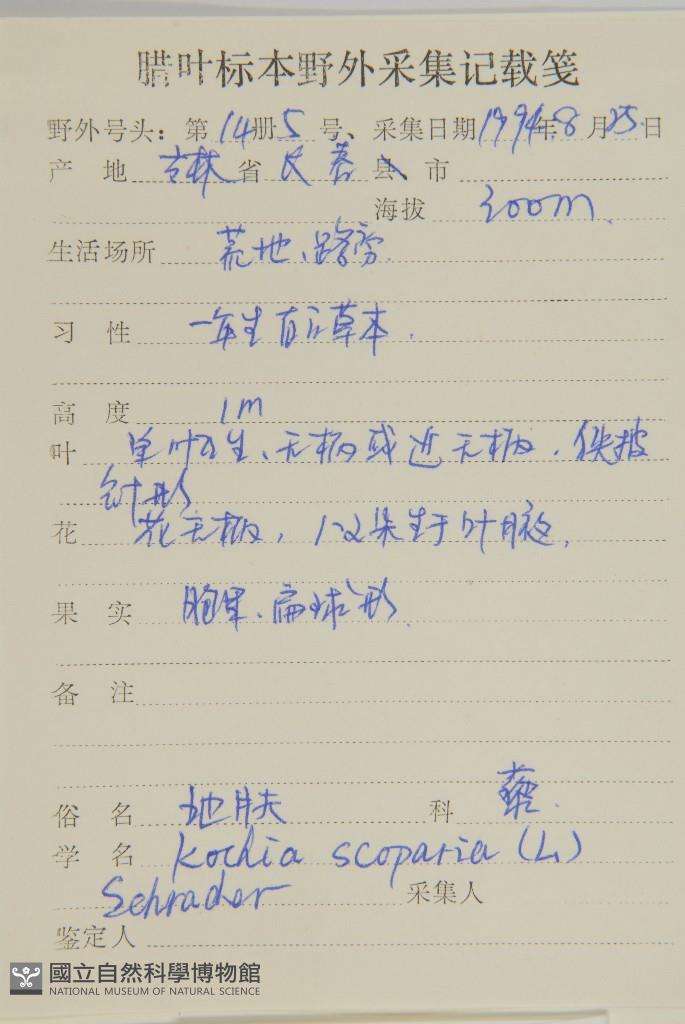 腊叶标本野外采集记载笺
野外号头：第14册5号、采集日期1994年8月25日
产地 吉林省 长春 县、市
海拔 200m.
生活场所 荒地、路旁.
习性 一年生直立草本.
高度 1m
叶 单叶互生、无柄或近无柄. 披
针形
花 花无柄, 1-2朵生于叶腋.
果实 胞果、扁球形.
备注
俗名 地肤 科 藜.
学名 Kochia scoparia (L.)
Schrader 采集人
鉴定人
國立自然科學博物館
NATIONAL MUSEUM OF NATURAL SCIENCE